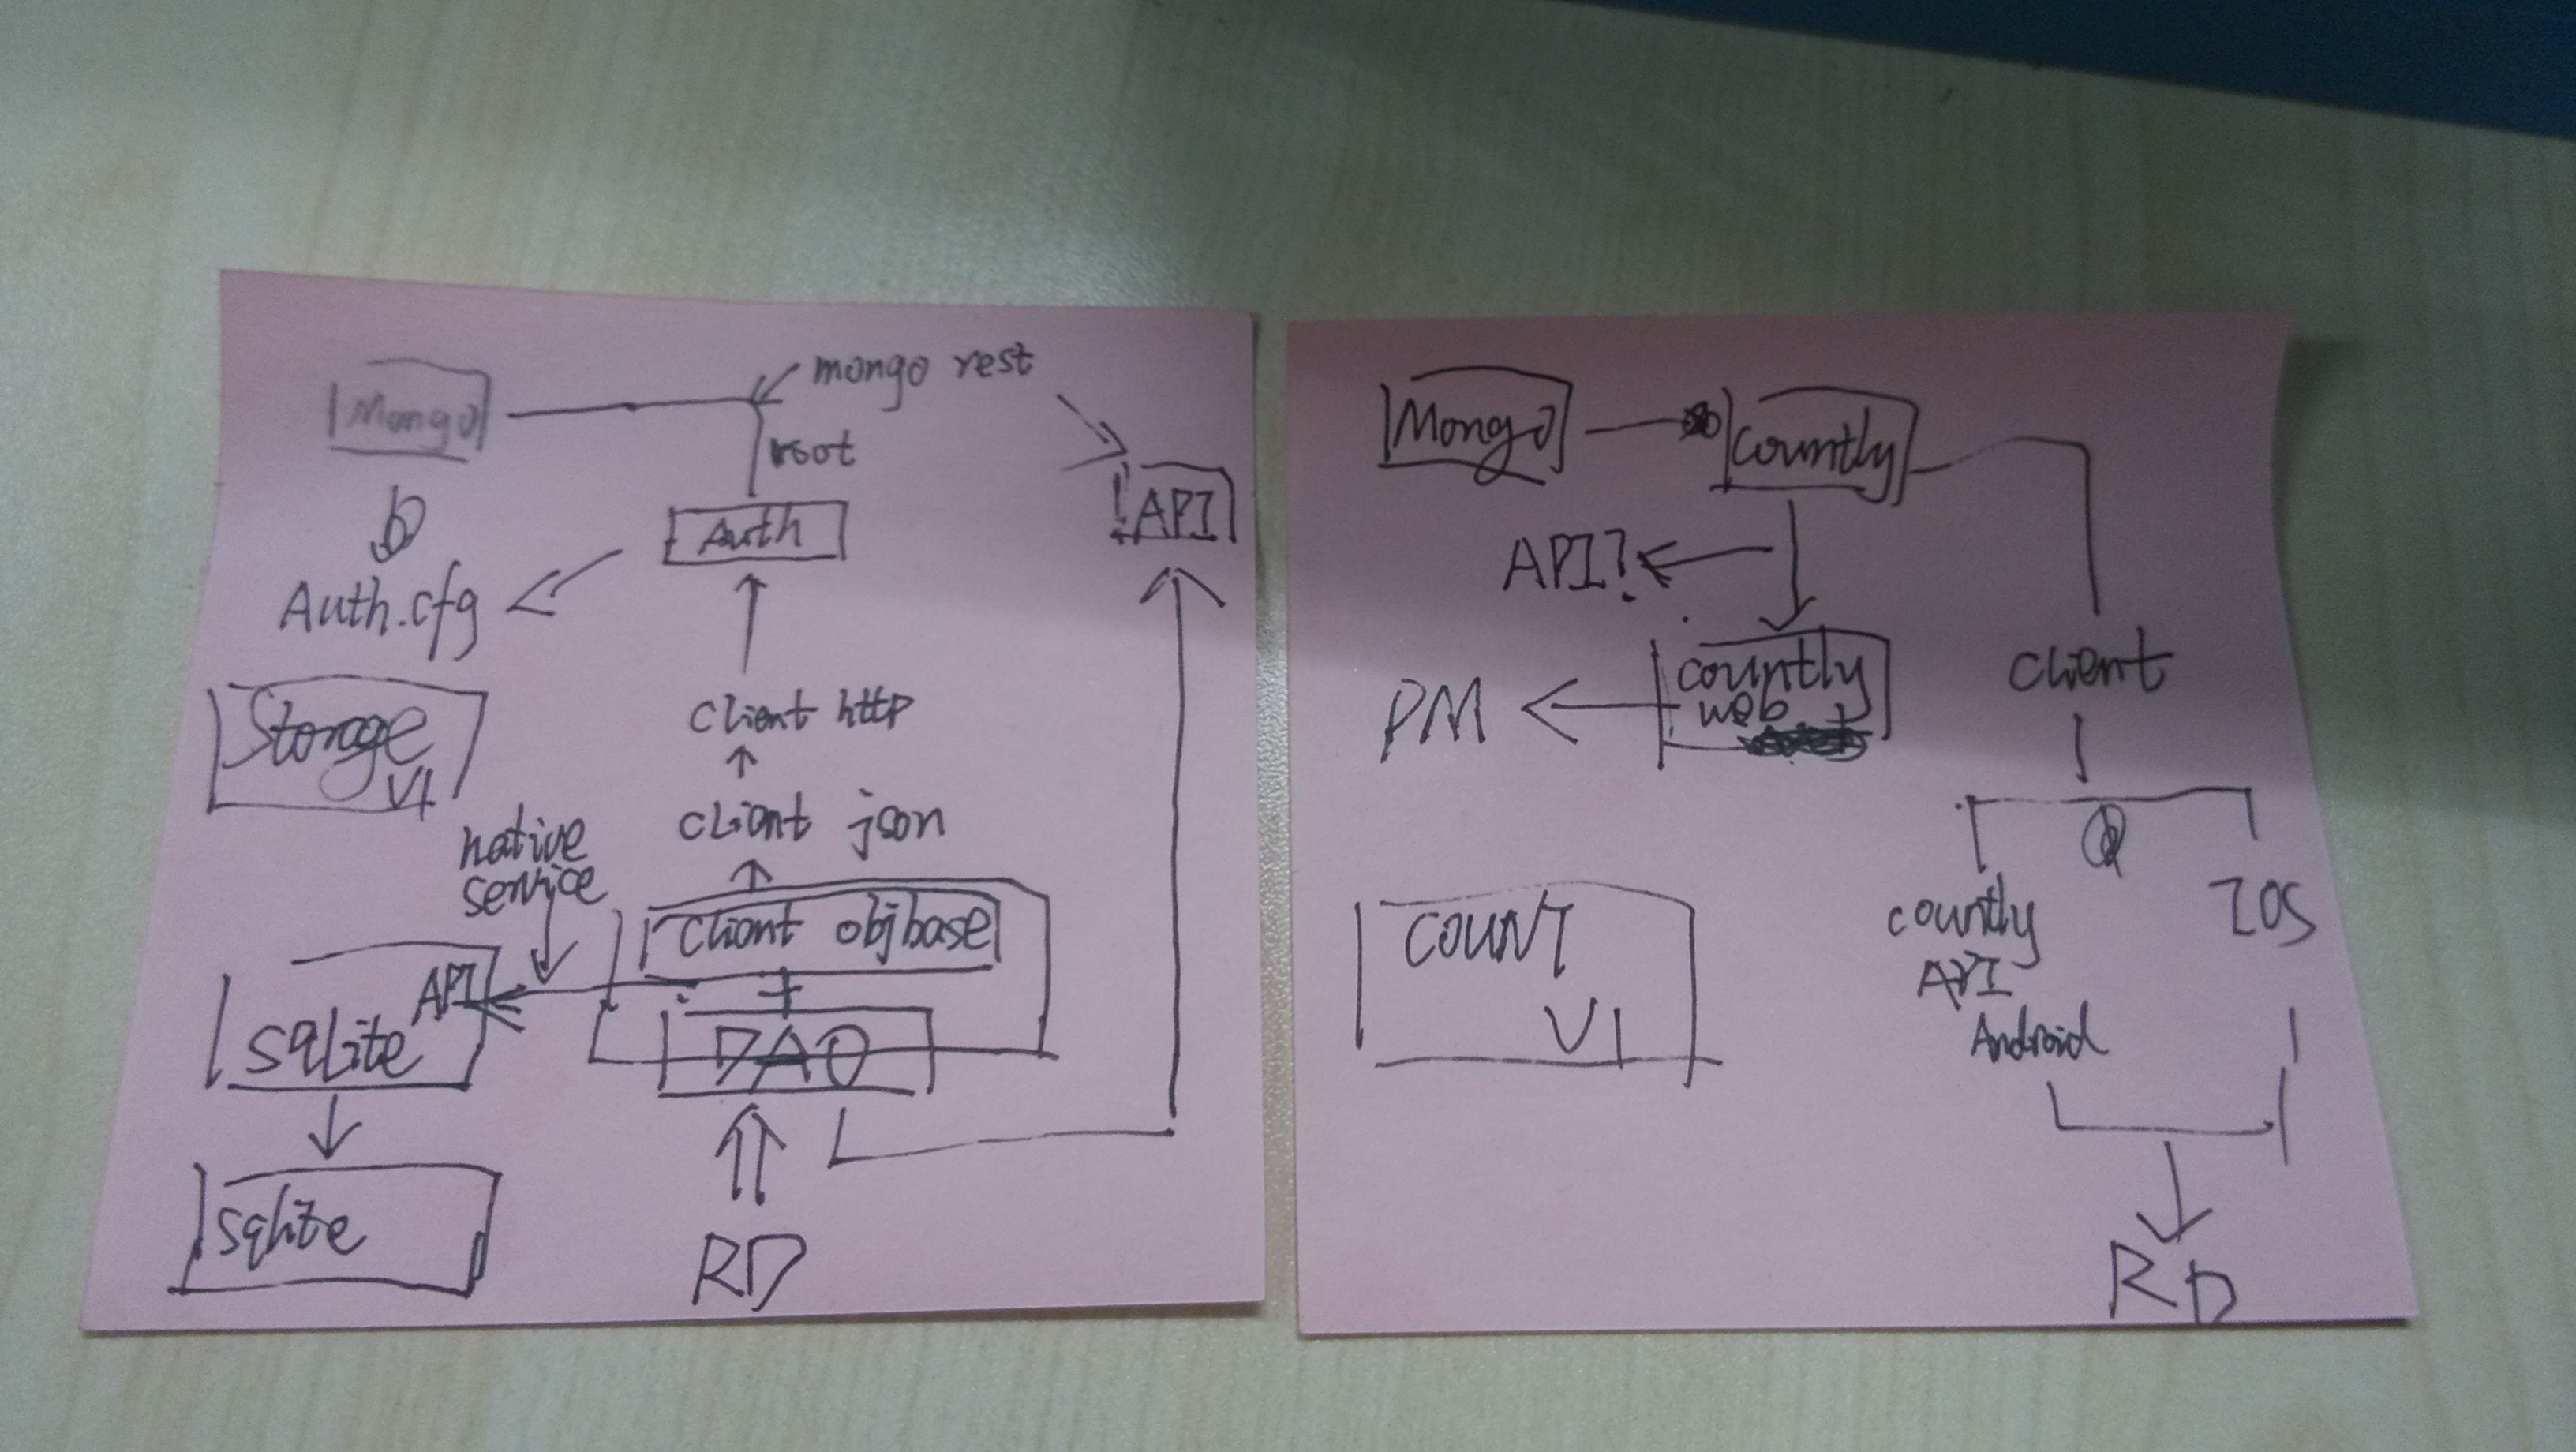 mongo rest
Mongo
root
API
Auth
Auth.cfg
Storage
V1
client http
client json
native
service
client objbase
API
sqlite
DAO
sqlite
RD
Mongo
countly
API?
countly
web
PM
client
countly
API
Android
IOS
COUNT
V1
RD